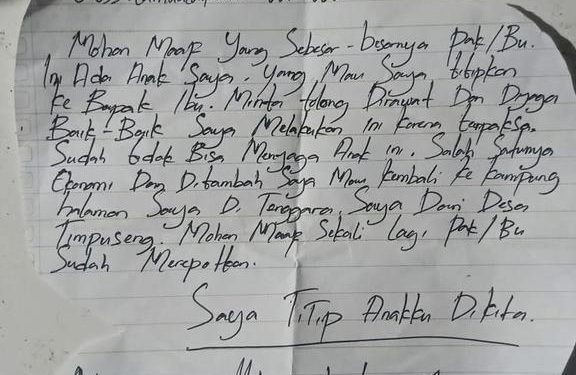 Mohon Maap Yang Sebesar-besarnya Pak/Bu.
Ini Ada Anak Saya. Yang Mau Saya titipkan
Ke Bapak Ibu. Minta tolong Dirawat Dan Dijaga
Baik-Baik Saya Melakukan Ini Karena terpaksa.
Sudah tidak Bisa Menjaga Anak ini. Salah Satunya
Ekonomi Dan Ditambah Saya Mau Kembali Ke Kampung
halaman Saya Di Tenggara, Saya Dari Desa
Timpuseng. Mohon Maap Sekali lagi Pak/Bu
Sudah Merepotkan.
Saya TiTip Anakku Dikita.